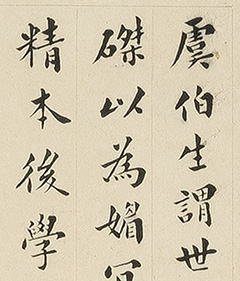 虞伯生謂世
磔以為媚
精本後學